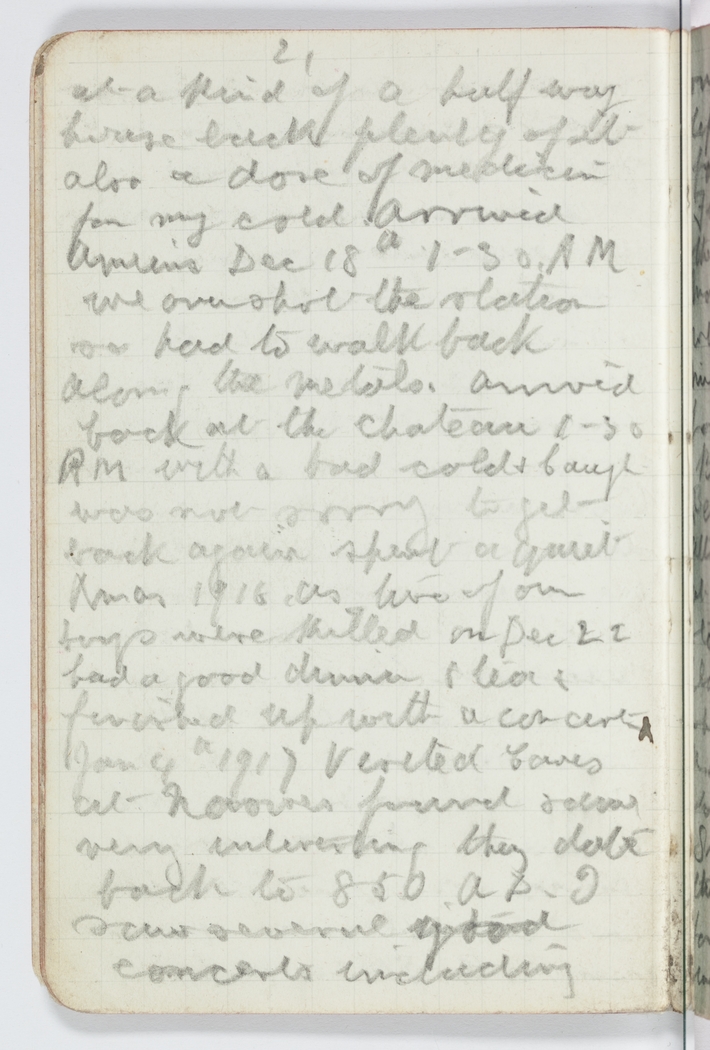 21
at a kind of a half way
house back plenty of it
also a dose of medicin
for my cold. arrived
Amiens Dec 18th 1-30 AM
we overshot the station
so had to walk back
along the metals. arrived
back at the Chateau 1-30
AM with a bad cold &
was not sorry to get
back again spent a quiet
Xmas 1916 as five of our
boys were killed on Dec 22
had a good dinner & tea &
finished up with a concert
Jan 4th 1917 Visited Caves
at Naours found same
very interesting they date
back to 850 A D. I
saw several good
concerts including